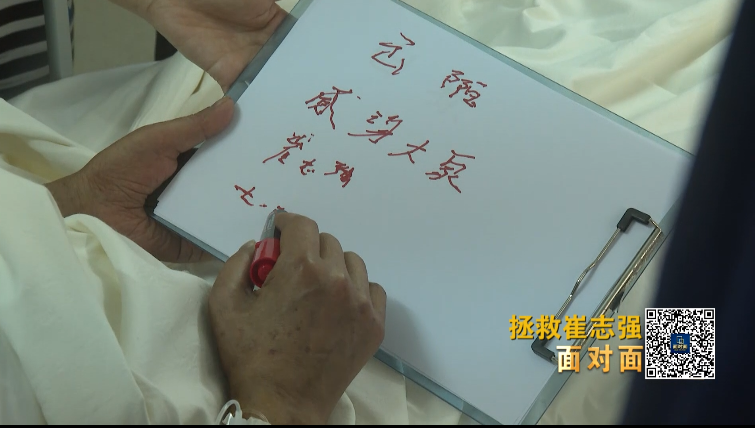 感谢大家
崔志强
七.
拯救崔志强
面对面